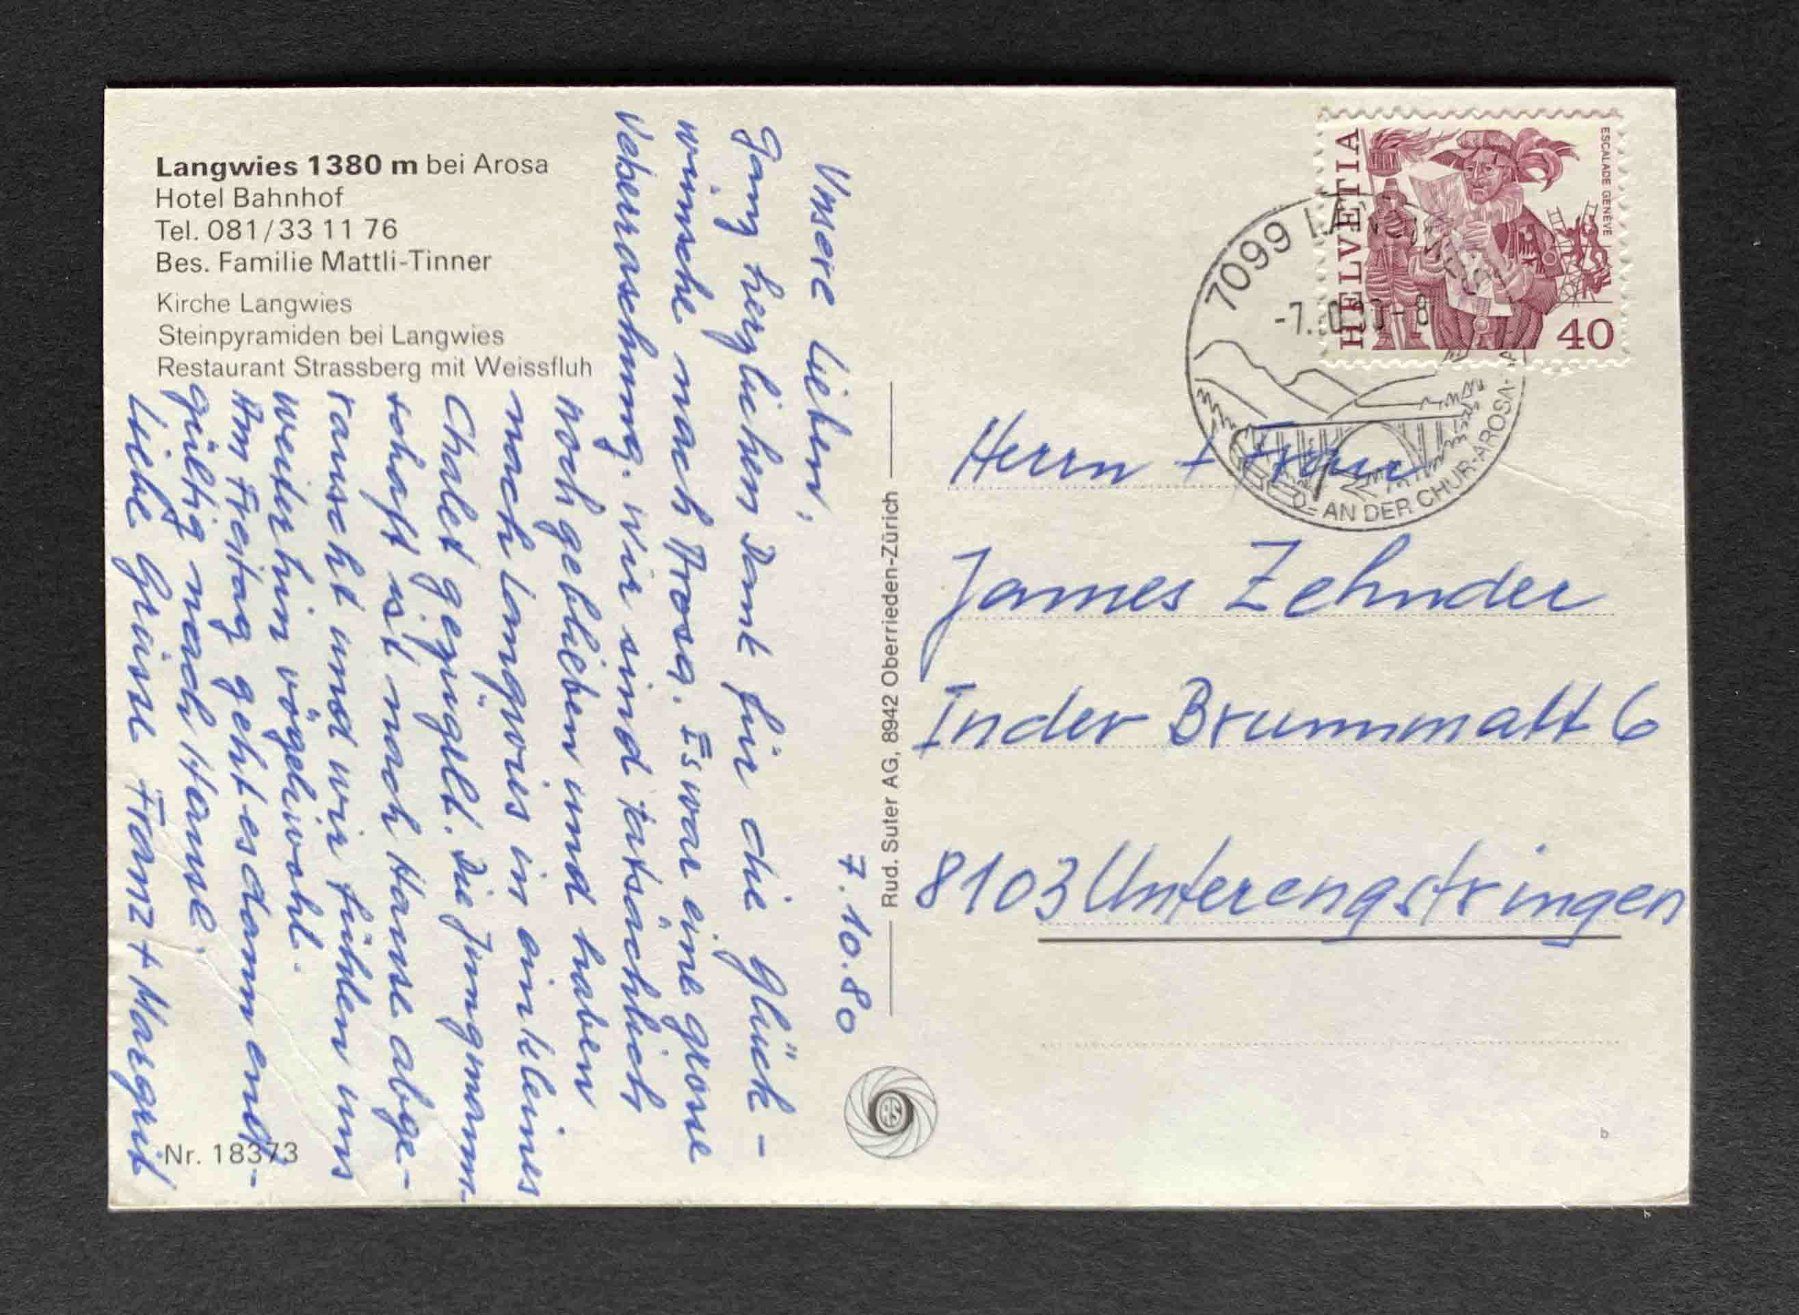 Langwies 1380 m bei Arosa
Hotel Bahnhof
Tel. 081/33 11 76
Bes. Familie Mattli-Tinner
Kirche Langwies
Steinpyramiden bei Langwies
Restaurant Strassberg mit Weissfluh
7.10.80
Unsere Lieben,
Ganz herzlichen Dank für die Glück-
wünsche nach Arosa. Es war eine grosse
Ueberraschung. Wir sind tatsächlich
noch geblieben und haben
nach Langwies in ein kleines
Chalet gezügelt. Die Jungmann-
schaft ist nach Hause abge-
rauscht und wir fühlen uns
weiterhin vögeliwohl.
Am Freitag geht es dann end-
gültig nach Hause.
Liebe Grüsse Franz + Margrit
Nr. 18373
Rud. Suter AG, 8942 Oberrieden-Zürich
RS
HELVETIA
ESCALADE GENÈVE
40
7099 LANGWIES
-7.10.80-8
AN DER CHUR-AROSA-
Herrn + Frau
James Zehnder
In der Brummatt 6
8103 Unterengstringen
b